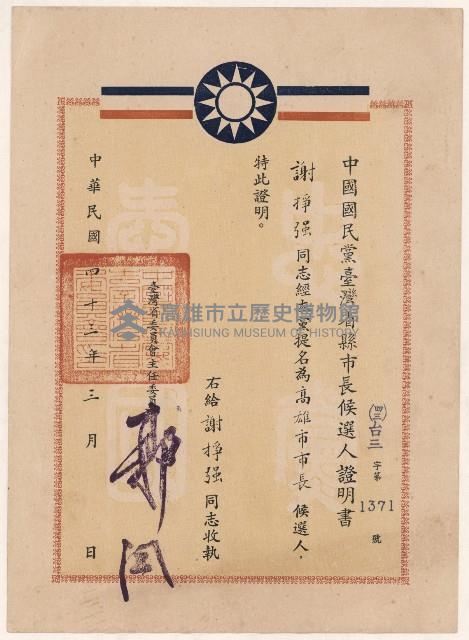 中國國民黨臺灣省縣市長候選人證明書
(四三)台三字第1371號
謝掙强同志經本黨提名為高雄市市長候選人，
特此證明。
右給謝掙强同志收執
臺灣省委員會主任委員
中華民國四十三年三月 日
高雄市立歷史博物館
KAOHSIUNG MUSEUM OF HISTORY